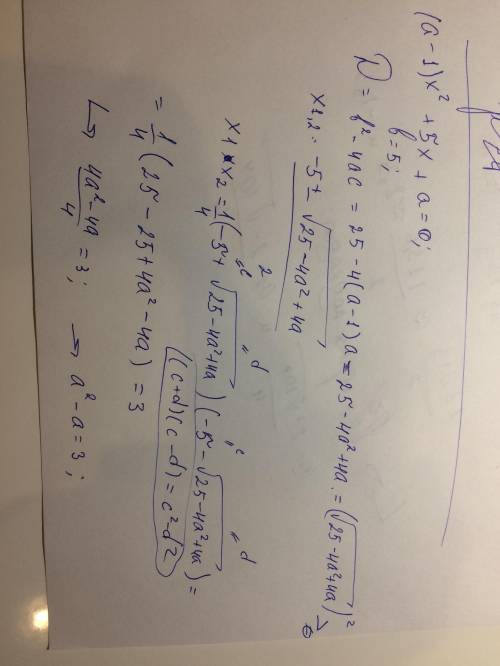 (a-1)x² + 5x + a = 0;
b=5;
D = b² - 4ac = 25 - 4(a-1)a = 25 - 4a² + 4a = (√25-4a²+4a)²
x1,2 = -5 ± √25-4a²+4a
x1 * x2 = 1/4 (-5 + √25-4a²+4a) (-5 - √25-4a²+4a) =
((c+d)(c-d) = c²-d²)
= 1/4 (25 - 25 + 4a² - 4a) = 3
↳ 4a²-4a/4 = 3; → a² - a = 3;